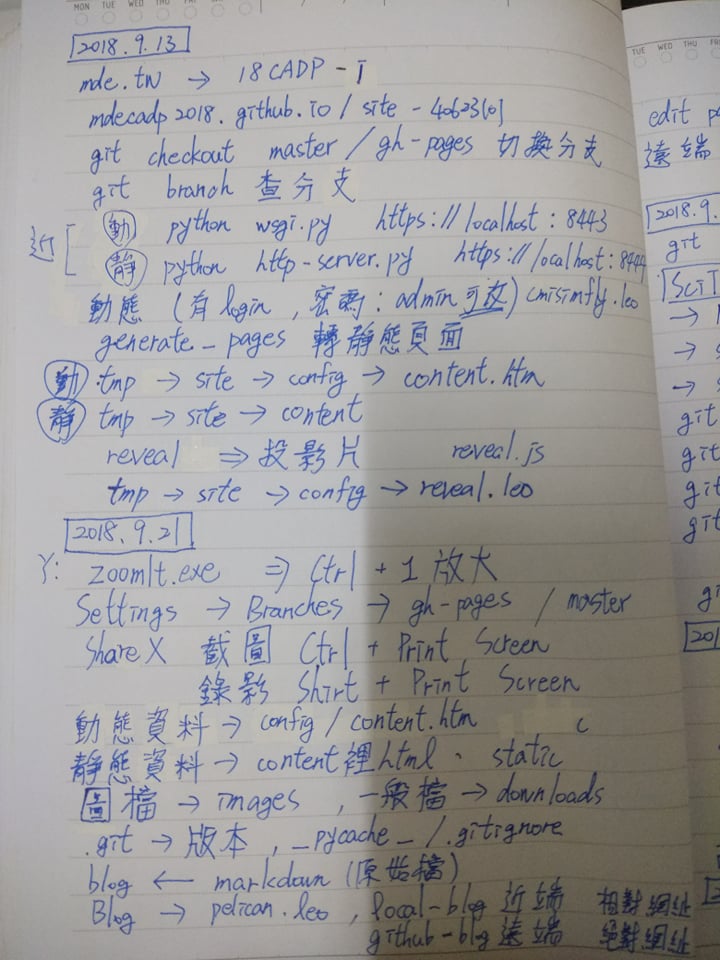 MON TUE WED THU FRI
2018.9.13
mde.tw → 18 CADP - I
mdecadp2018.github.io / site - 40623101
git checkout master / gh-pages 切換分支
git branch 查分支
近 [ 動 python wsgi.py https://localhost:8443
靜 python http-server.py https://localhost:8444
動態 (有login, 密碼: admin 可改) cmsimfly.leo
generate_pages 轉靜態頁面
動 tmp → site → config → content.htm
靜 tmp → site → content
reveal ⇒ 投影片 reveal.js
tmp → site → config → reveal.leo
2018.9.21
Y: zoomIt.exe ⇒ Ctrl + 1 放大
Settings → Branches → gh-pages / master
ShareX 截圖 Ctrl + Print Screen
錄影 Shirt + Print Screen
動態資料 → config / content.htm
靜態資料 → content裡html、static
圖檔 → images , 一般檔 → downloads
.git → 版本 , _pycache_ / .gitignore
blog ← markdown (原始檔)
Blog → pelican.leo , local-blog 近端 相對網址
github-blog 遠端 絕對網址
TUE WED THU
edit
遠端
2018.9.
git
→
→
→
git
git
git
git